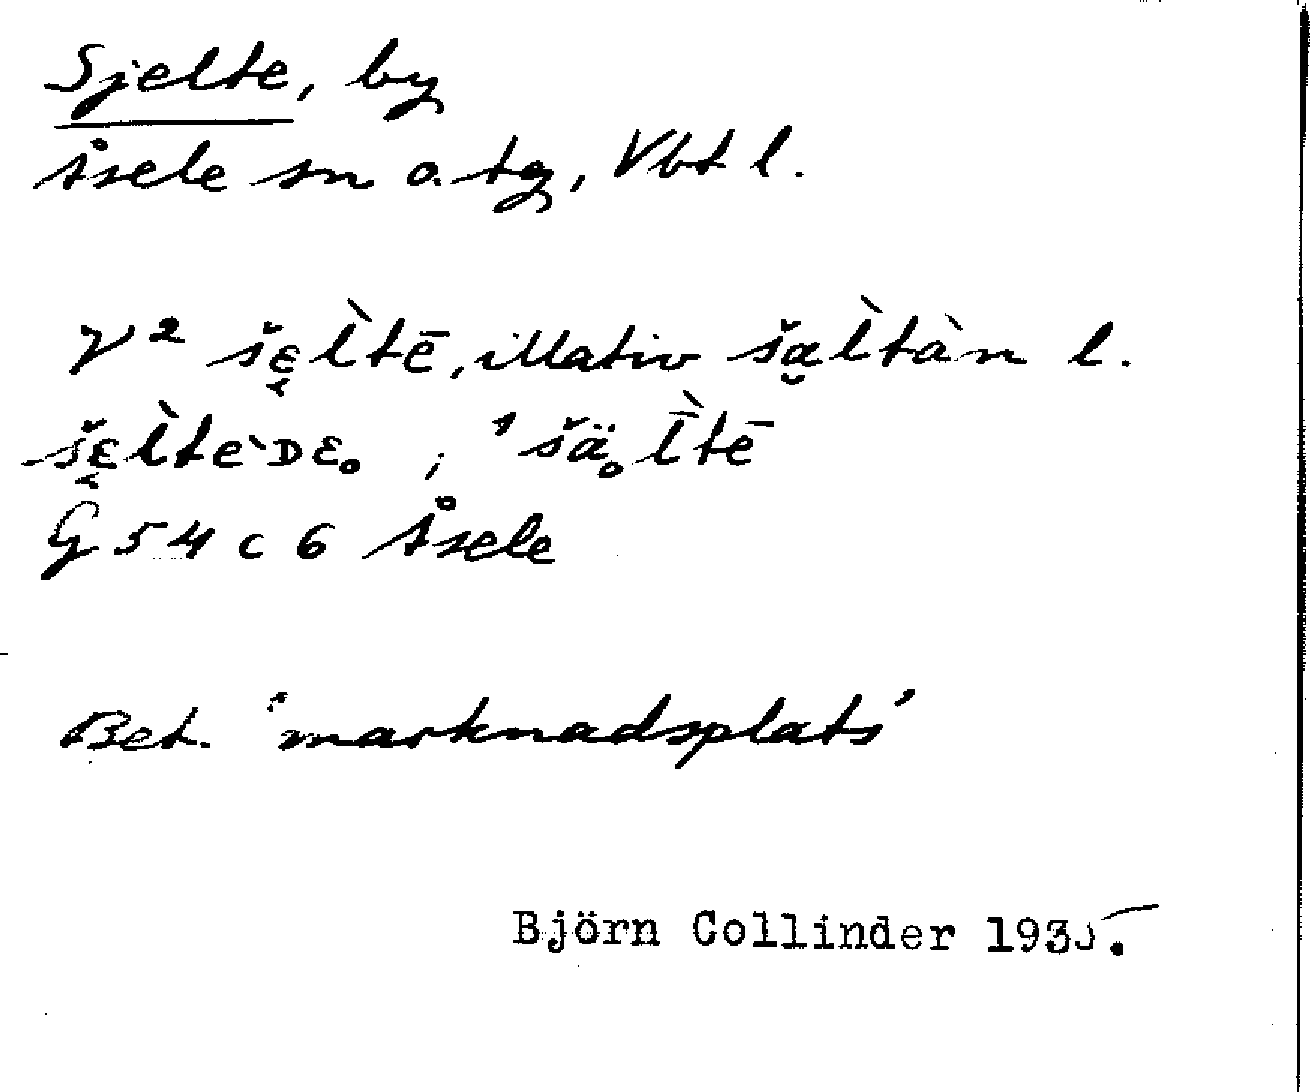 Sjelte, by
Åsele sn o. tg, Vbt l.
V² šę̆l̀tē, illativ ša̮l̀tàn l.
šę̆l̀te`ᴅɛ₀ ; ¹šä₀l̄̀tē
G 54 c 6 Åsele
Bet. 'marknadsplats'
Björn Collinder 1935.